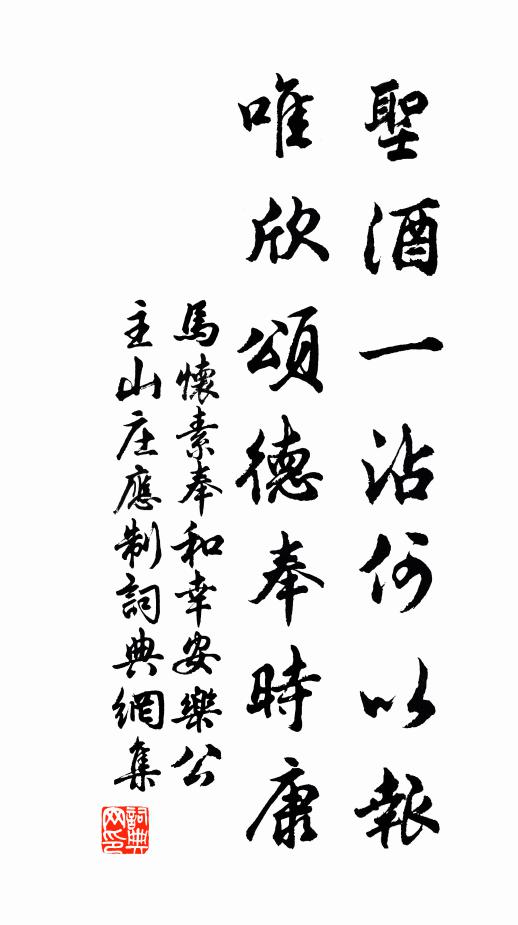 聖酒一沾何以報
唯欣頌德奉時康
馬懷素奉和幸安樂公
主山庄應制詞典網集
詞典
网印